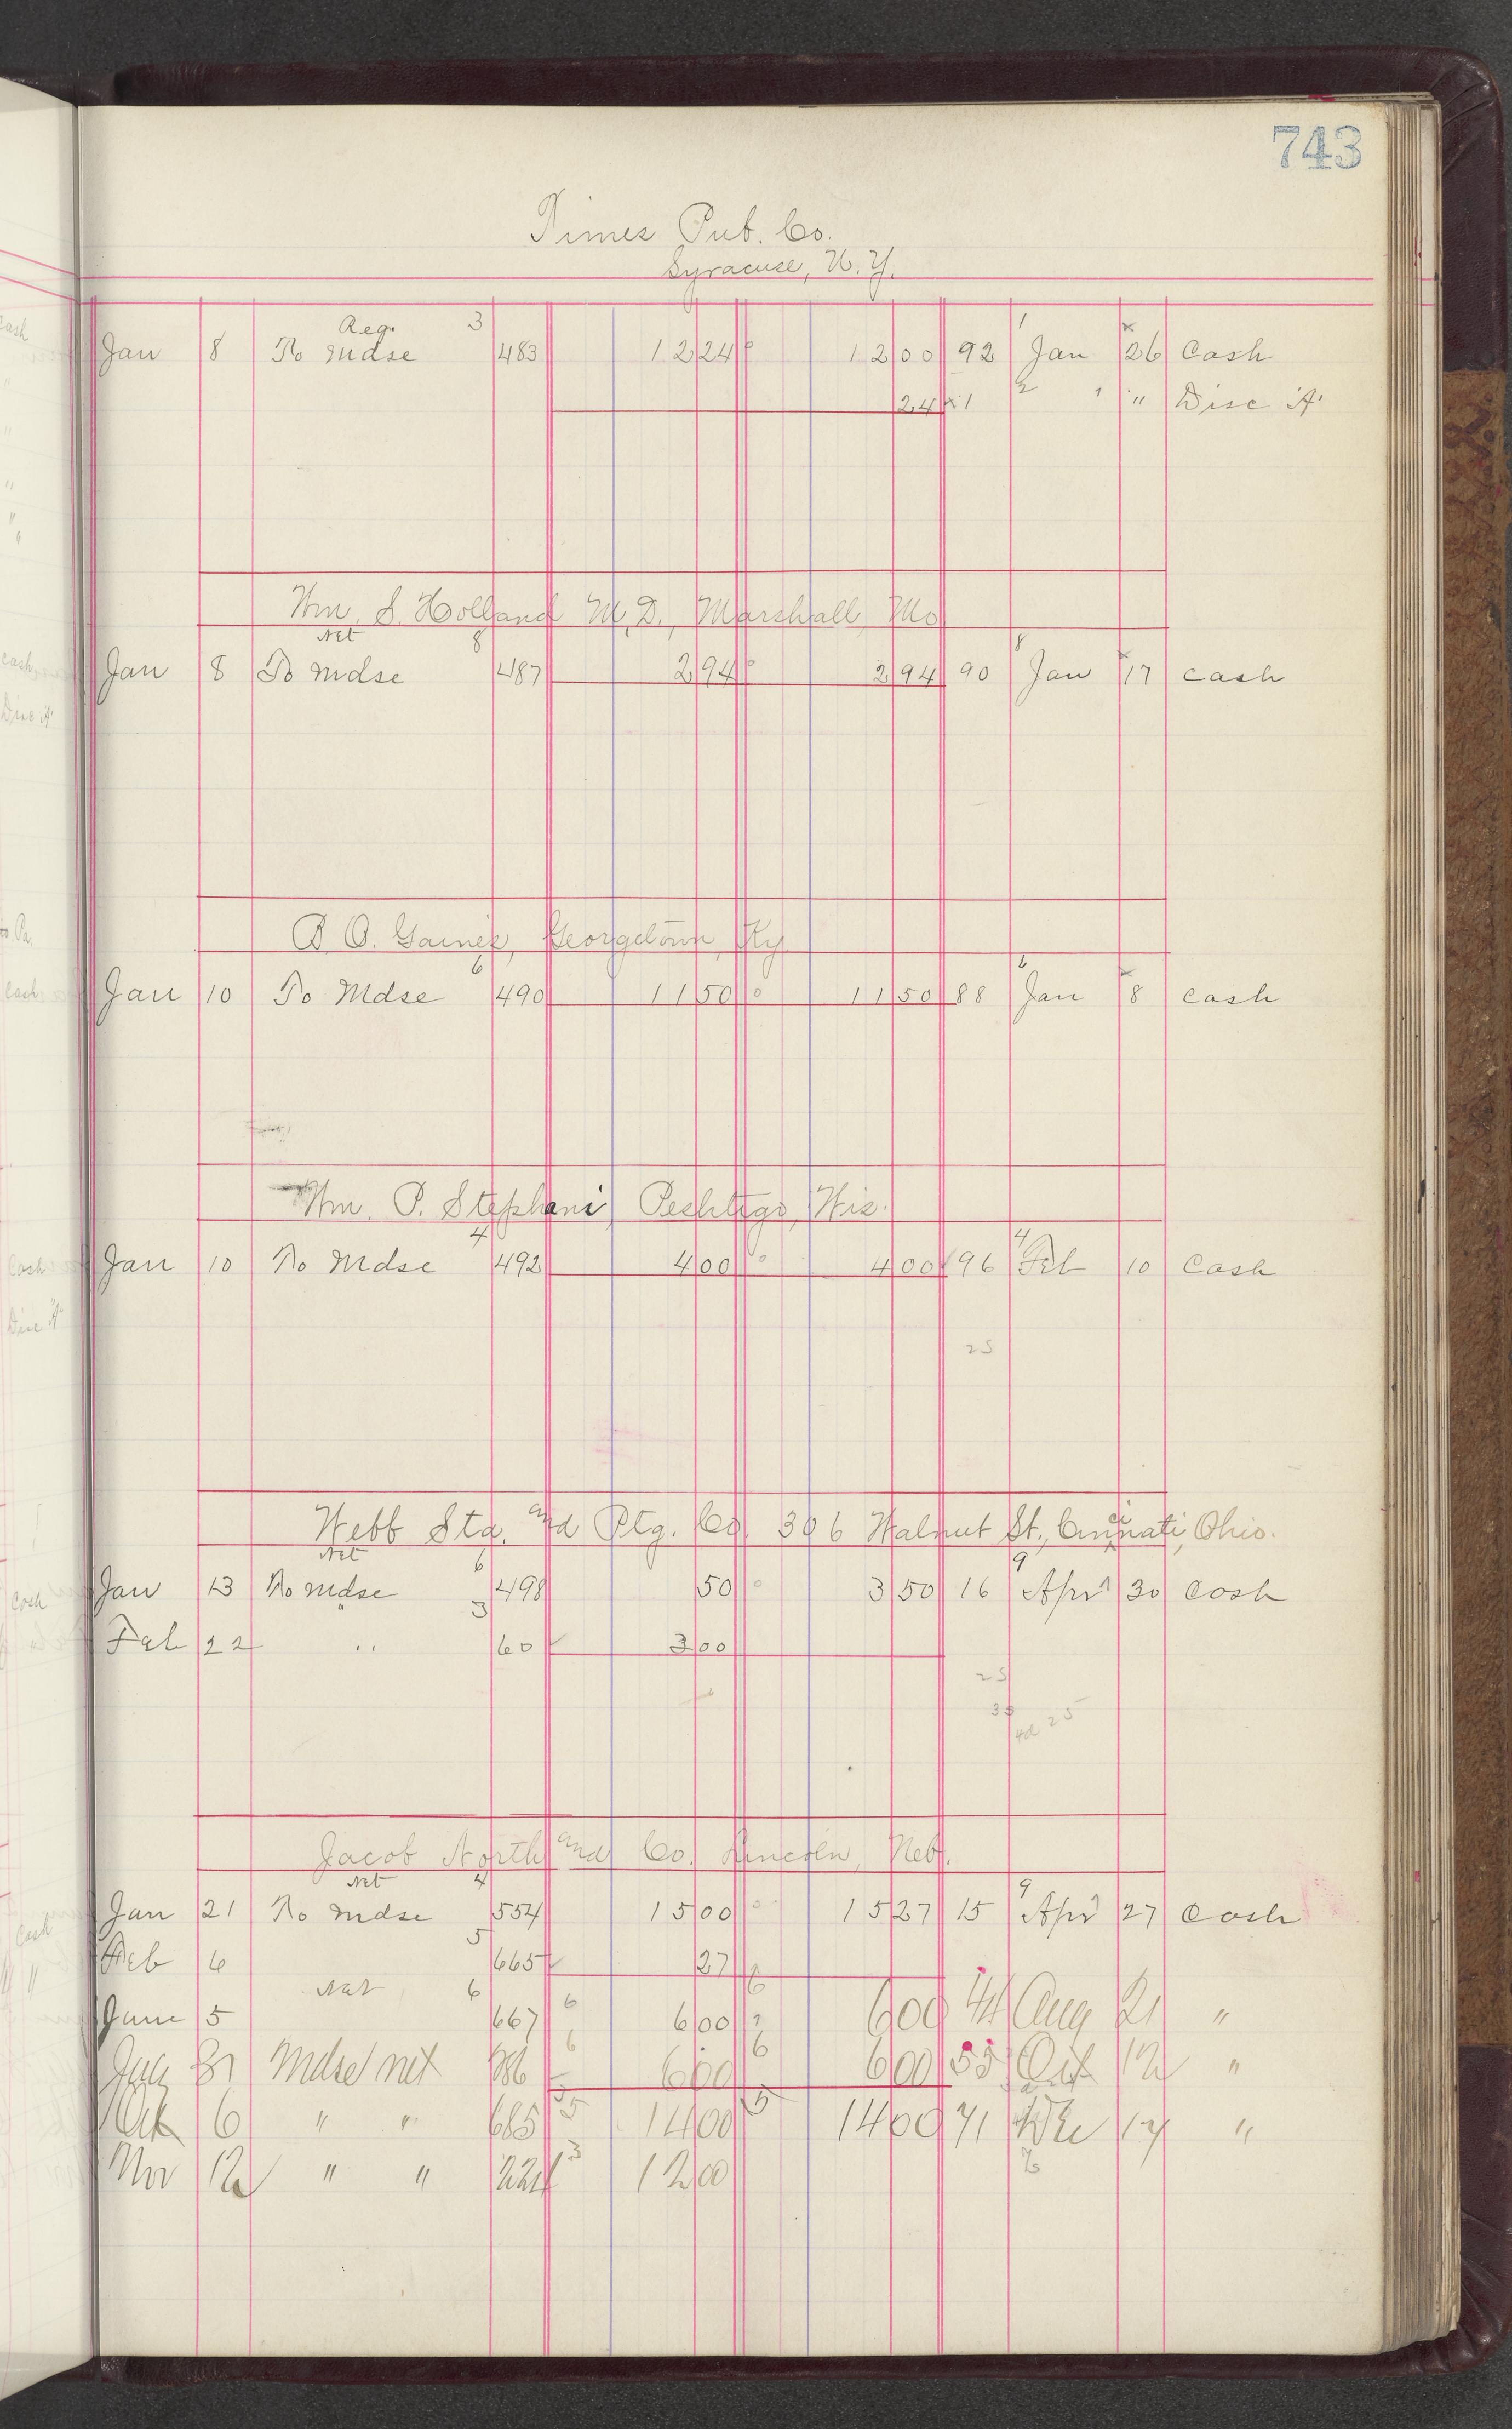 743
Times Pub. Co.
Syracuse, N.Y.
Reg. 3
Jan 8 To Mdse 483 12 24 12 00 92 1 Jan 26 Cash
24 1 2 " " Disc "A"
Wm. S. Holland M.D., Marshall, Mo
Net 8 8
Jan 8 To Mdse 487 2 94 2 94 90 Jan 17 Cash
B. O. Gaines, Georgetown, Ky
6 6
Jan 10 To Mdse 490 11 50 11 50 88 Jan 8 Cash
Wm. P. Stephani, Peshtigo, Wis.
4 4
Jan 10 To Mdse 492 4 00 4 00 96 Feb 10 Cash
25
Webb Sta. and Ptg. Co. 306 Walnut St., Cincinnati, Ohio.
Net 6 9
Jan 13 To Mdse 498 50 3 50 16 Apr 30 Cash
3
Feb 22 " 60 3 00
25
35
25
Jacob North and Co. Lincoln, Neb.
Net 4 9
Jan 21 To Mdse 554 15 00 15 27 15 Apr 27 Cash
5
Feb 6 665 27
Net 6 6
June 5 667 6 6 00 6 00 Aug 21 "
6 6
Aug 31 Mdse net 6 00 6 00 55 Oct 12 "
Oct 6 " " 685 5 14 00 5 14 00 71 Dec 17 "
Nov 12 " " 224 3 12 00